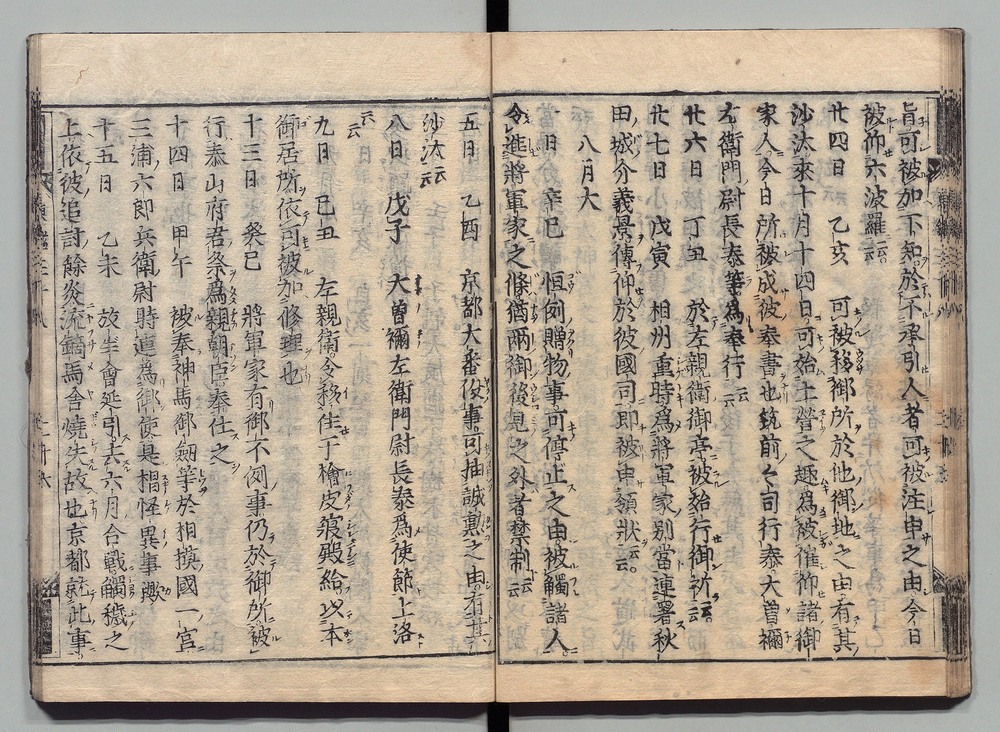 旨可被加下知於不承引人者可被注申之由今日
被仰六波羅云云
廿四日　乙亥　可被移御所於他御地之由有其
沙汰來十月十四日可始土營之趣為被催仰諸御
家人今日所被成被奉書也筑前々司行泰大曽禰
左衛門尉長泰等為奉行云云
廿六日　丁丑　於左親衛御亭被始行御祈云云
廿七日　戊寅　相州重時為將軍家別當連署秋
田城介義景傳仰於彼國司即被申領狀云云
八月大
一日　辛巳　恒例贈物事可停止之由被觸諸人
令進將軍家之條猶兩御後見之外者禁制云云
五日　乙酉　京都大番役事可抽誠勲之由有其
沙汰云云
八日　戊子　大曽禰左衛門尉長泰為使節上洛
云云
九日　己丑　左親衛令移住于檜皮寢殿給以本
御居所依可被加修理也
十三日　癸巳　將軍家有御不例事仍於御所被
行泰山府君祭為親朝臣奉仕之
十四日甲午　被奉神馬御釼等於相摸國一宮
三浦六郎兵衛尉時連為御使是相怪異事歟
十五日　乙未　放生會延引去六月合戰觸穢之
上依彼追討餘炎流鏑馬舍燒失故也京都就此事